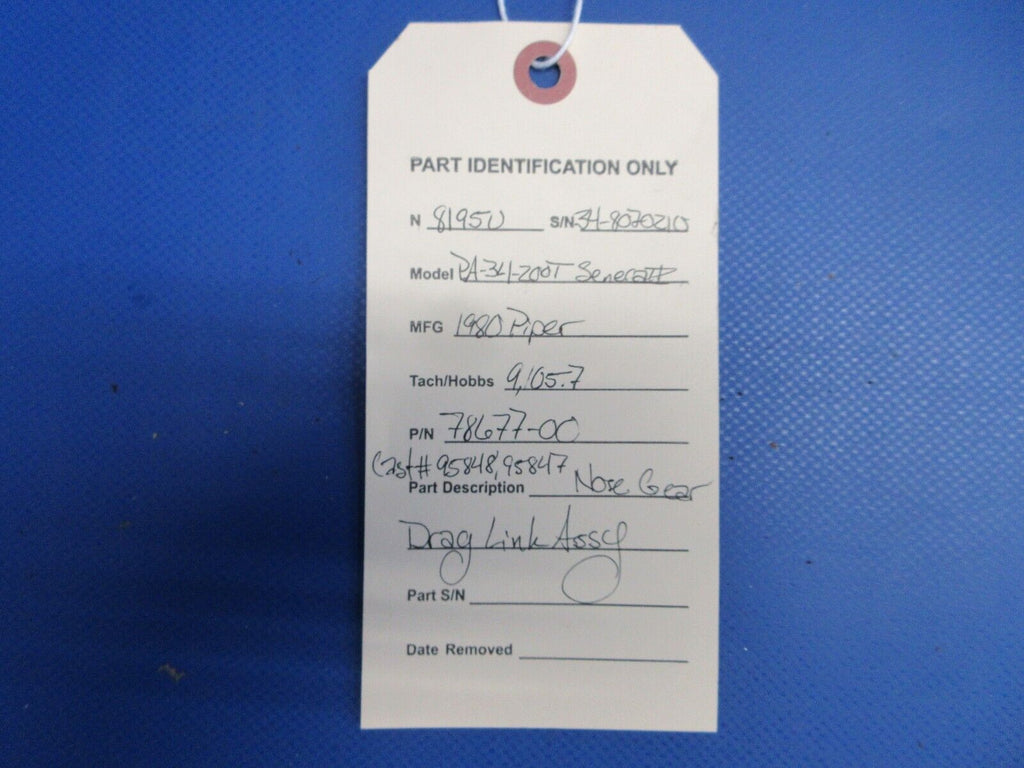 PART IDENTIFICATION ONLY
N 8195U S/N 34-8070210
Model PA-34-200T Seneca II
MFG 1980 Piper
Tach/Hobbs 9,105.7
P/N 78677-00
Cast# 95848, 95847
Part Description Nose Gear
Drag Link Assy
Part S/N
Date Removed